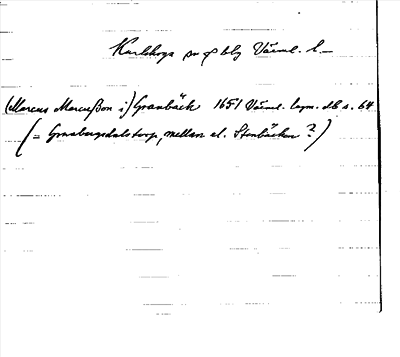 Karlskoga sn o blg Värml. l.
(Marcus Marcusson i) Granbäck 1651 Värml. lagm. db s. 64
(= Granbergsdalstorp, mellan el. Stenbäcken ?)